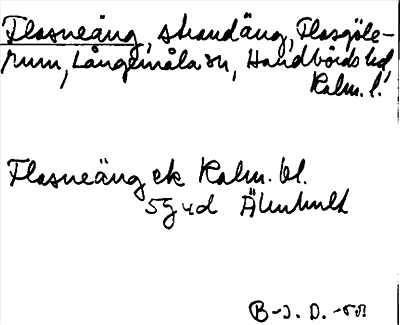 Flasneäng, strandäng, Flasgöle-
rum, Långemåla sn, Handbörds hd,
Kalm. l.
Flasneäng ek Kalm. bl.
5g vd Älmhult
B-J. D. -53